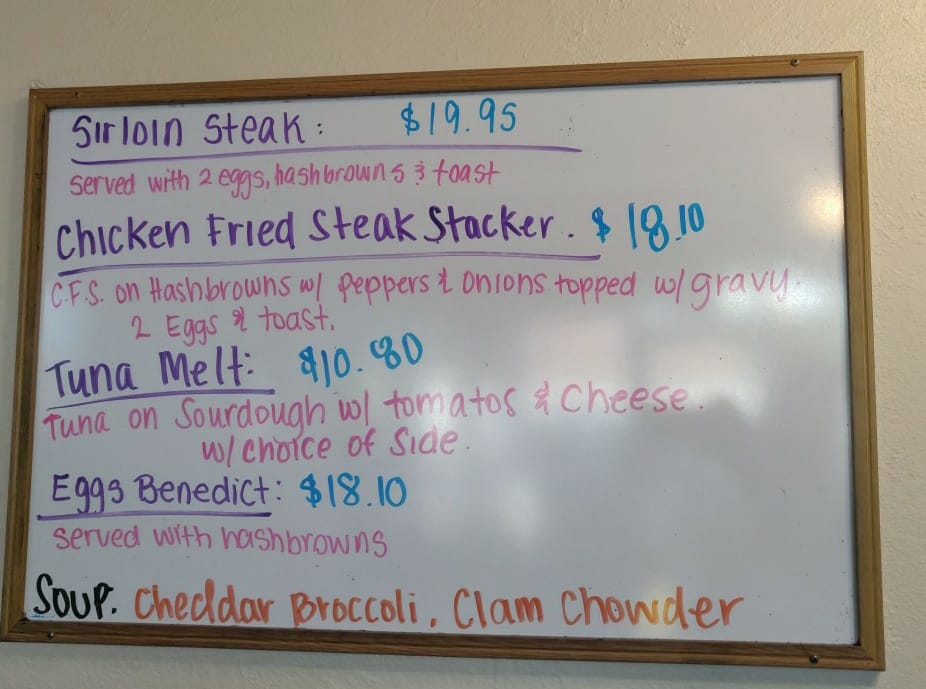 Sirloin Steak: $19.95
served with 2 eggs, hashbrowns & toast
Chicken Fried Steak Stacker. $18.10
C.F.S. on Hashbrowns w/ peppers & onions topped w/ gravy.
2 Eggs & toast.
Tuna Melt: $10.80
Tuna on Sourdough w/ tomatos & Cheese.
w/ choice of Side.
Eggs Benedict: $18.10
Served with hashbrowns
Soup. Cheddar Broccoli, Clam Chowder